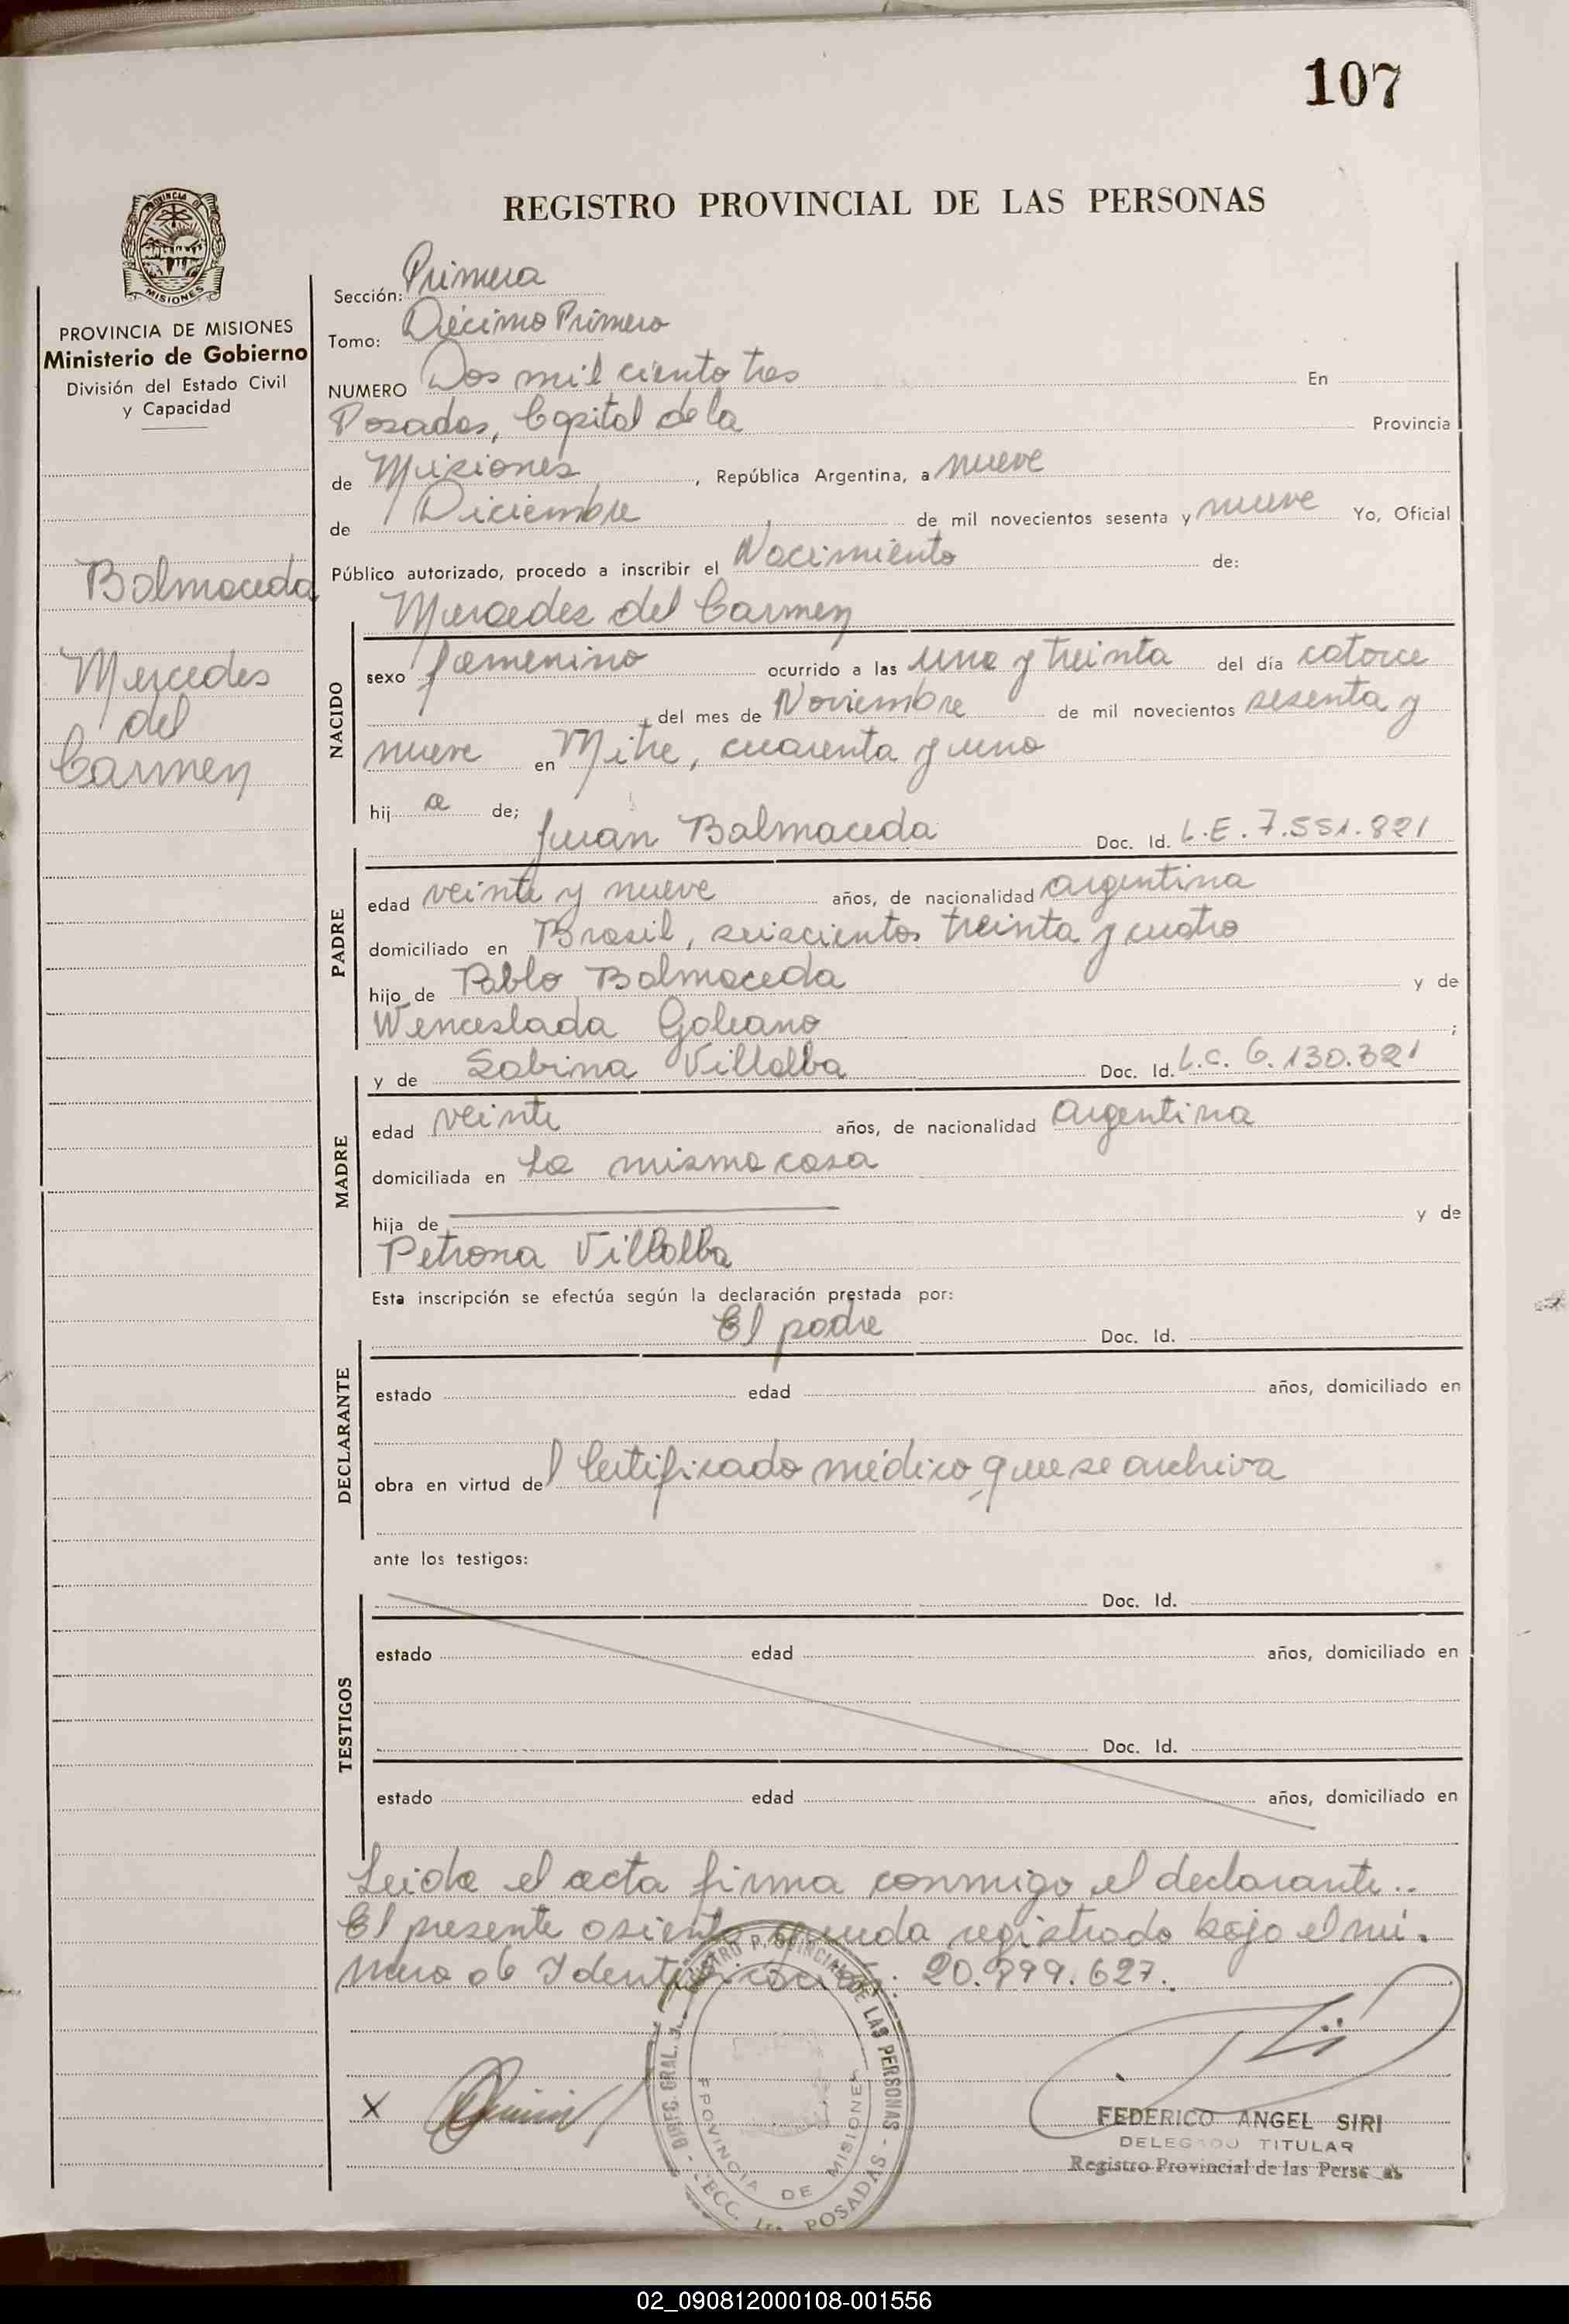 107
REGISTRO PROVINCIAL DE LAS PERSONAS
PROVINCIA DE
MISIONES
PROVINCIA DE MISIONES
Ministerio de Gobierno
División del Estado Civil
y Capacidad
Balmaceda
Mercedes
del
Carmen
Sección: Primera
Tomo: Décimo Primero
NUMERO Dos mil ciento tres En
Posadas, Capital de la Provincia
de Misiones, República Argentina, a nueve
de Diciembre de mil novecientos sesenta y nueve Yo, Oficial
Público autorizado, procedo a inscribir el Nacimiento de:
Mercedes del Carmen
NACIDO
sexo femenino ocurrido a las una y treinta del día catorce
del mes de Noviembre de mil novecientos sesenta y
nueve en Mitre, cuarenta y uno
hij a de;
Juan Balmaceda Doc. Id. L.E. 7.551.821
PADRE
edad veinte y nueve años, de nacionalidad argentina
domiciliado en Brasil, seiscientos treinta y cuatro
hijo de Pablo Balmaceda y de
Wenceslada Galeano ;
y de Sabina Villalba Doc. Id. L.C. 6.130.321
MADRE
edad veinte años, de nacionalidad argentina
domiciliada en La misma casa
hija de y de
Petrona Villalba
Esta inscripción se efectúa según la declaración prestada por:
El padre Doc. Id.
DECLARANTE
estado edad años, domiciliado en
obra en virtud del Certificado médico que se archiva
ante los testigos:
Doc. Id.
TESTIGOS
estado edad años, domiciliado en
Doc. Id.
estado edad años, domiciliado en
Leida el acta firma conmigo el declarante..
El presente asiento queda registrado bajo el nú.
mero de Identificación: 20.899.627.
X
PROVINCIAL DE LAS PERSONAS
PROVINCIA DE MISIONES
POSADAS
FEDERICO ANGEL SIRI
DELEGADO TITULAR
Registro Provincial de las Personas
02_090812000108-001556